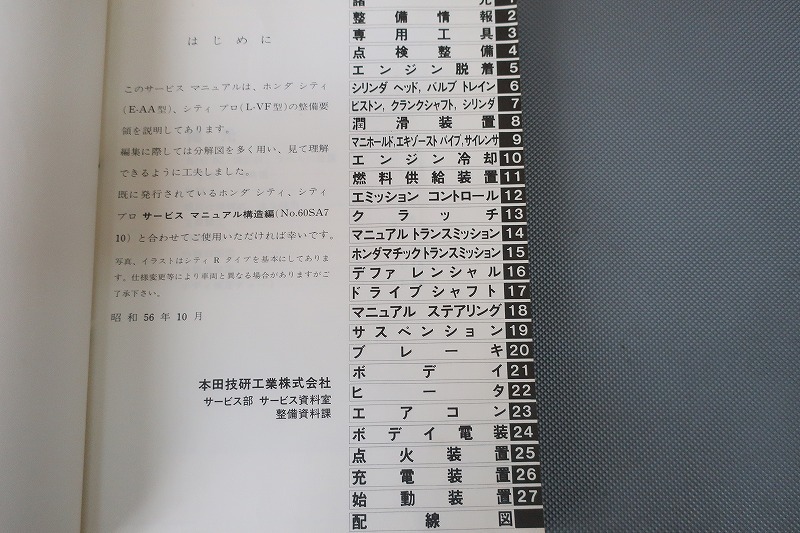 はじめに
このサービス マニュアルは、ホンダ シティ
(E-AA型)、シティ プロ(L-VF型)の整備要
領を説明してあります。
編集に際しては分解図を多く用い、見て理解
できるように工夫しました。
既に発行されているホンダ シティ、シティ
プロ サービス マニュアル構造編(No.60SA7
10)と合わせてご使用いただければ幸いです。
写真、イラストはシティ R タイプを基本にしてありま
す。仕様変更等により車両と異なる場合がありますがご
了承下さい。
昭和 56 年 10 月
本田技研工業株式会社
サービス部 サービス資料室
整備資料課
諸元 1
整備情報 2
専用工具 3
点検整備 4
エンジン脱着 5
シリンダ ヘッド, バルブ トレイン 6
ピストン, クランクシャフト, シリンダ 7
潤滑装置 8
マニホールド, エキゾースト パイプ, サイレンサ 9
エンジン冷却 10
燃料供給装置 11
エミッション コントロール 12
クラッチ 13
マニュアル トランスミッション 14
ホンダマチック トランスミッション 15
デファレンシャル 16
ドライブシャフト 17
マニュアル ステアリング 18
サスペンション 19
ブレーキ 20
ボデイ 21
ヒータ 22
エアコン 23
ボデイ電装 24
点火装置 25
充電装置 26
始動装置 27
配線図